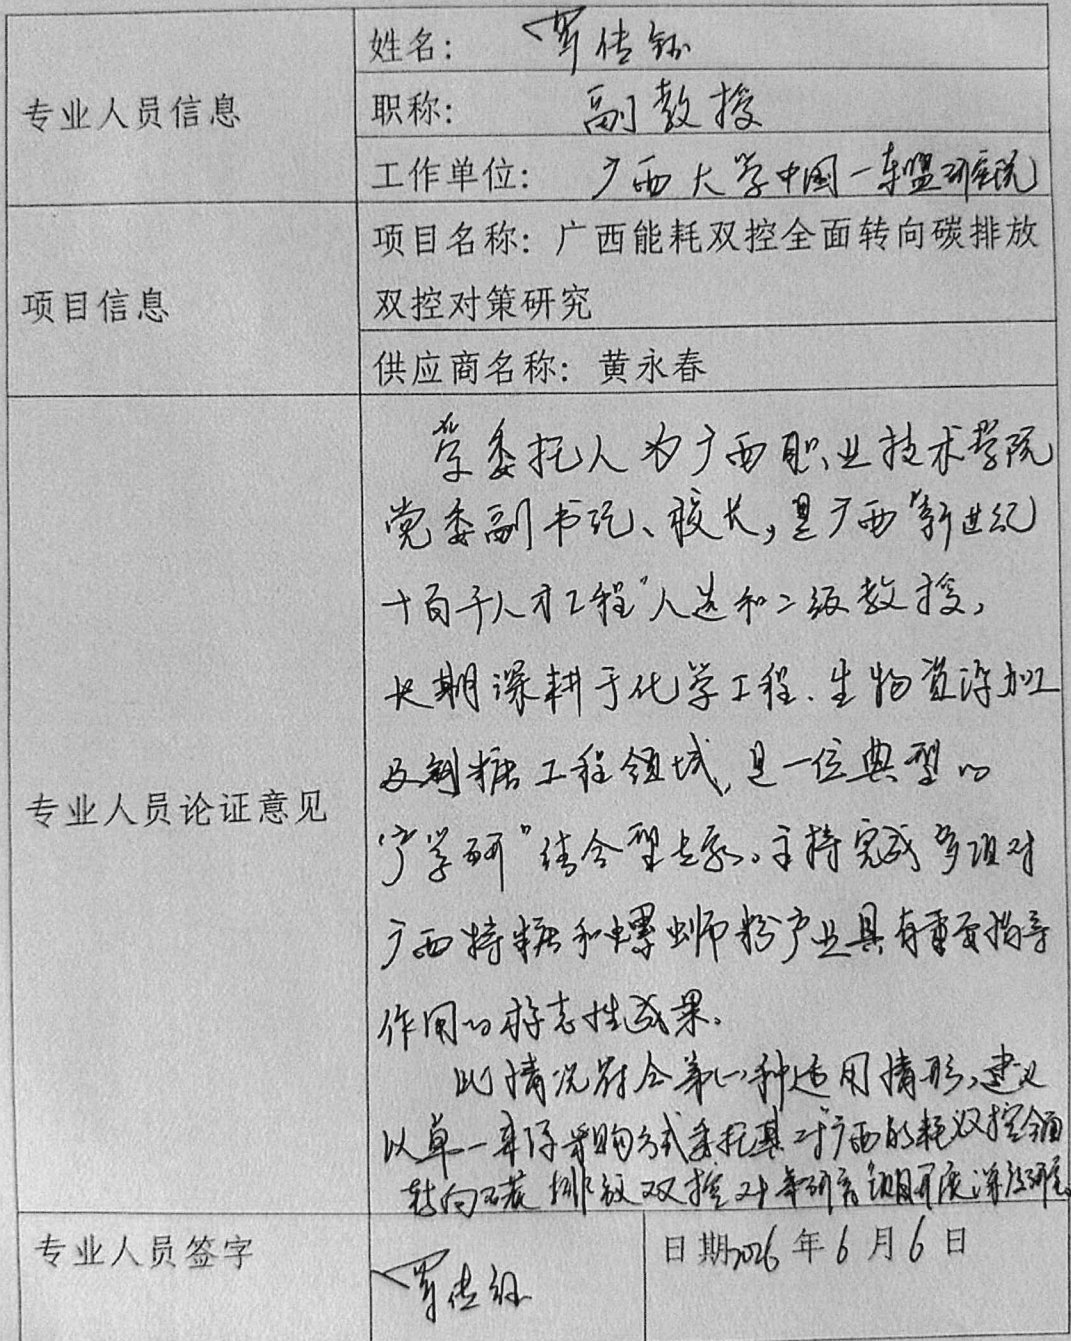 专业人员信息
姓名： 罗传钰
职称： 副教授
工作单位： 广西大学中国-东盟研究院
项目信息
项目名称：广西能耗双控全面转向碳排放
双控对策研究
供应商名称：黄永春
专业人员论证意见
受委托人为广西职业技术学院
党委副书记、校长，是广西"新世纪
十百千人才工程"人选和二级教授，
长期深耕于化学工程、生物资源加工
及制糖工程领域，是一位典型的
"产学研"结合型专家。主持完成多项对
广西特糖和螺蛳粉产业具有重要指导
作用的标志性成果。
此情况符合第(一)种适用情形，建议
以单一来源采购方式委托其对广西能耗双控全面
转向碳排放双控对策研究项目开展深入研究。
专业人员签字
罗传钰
日期2026年6月6日